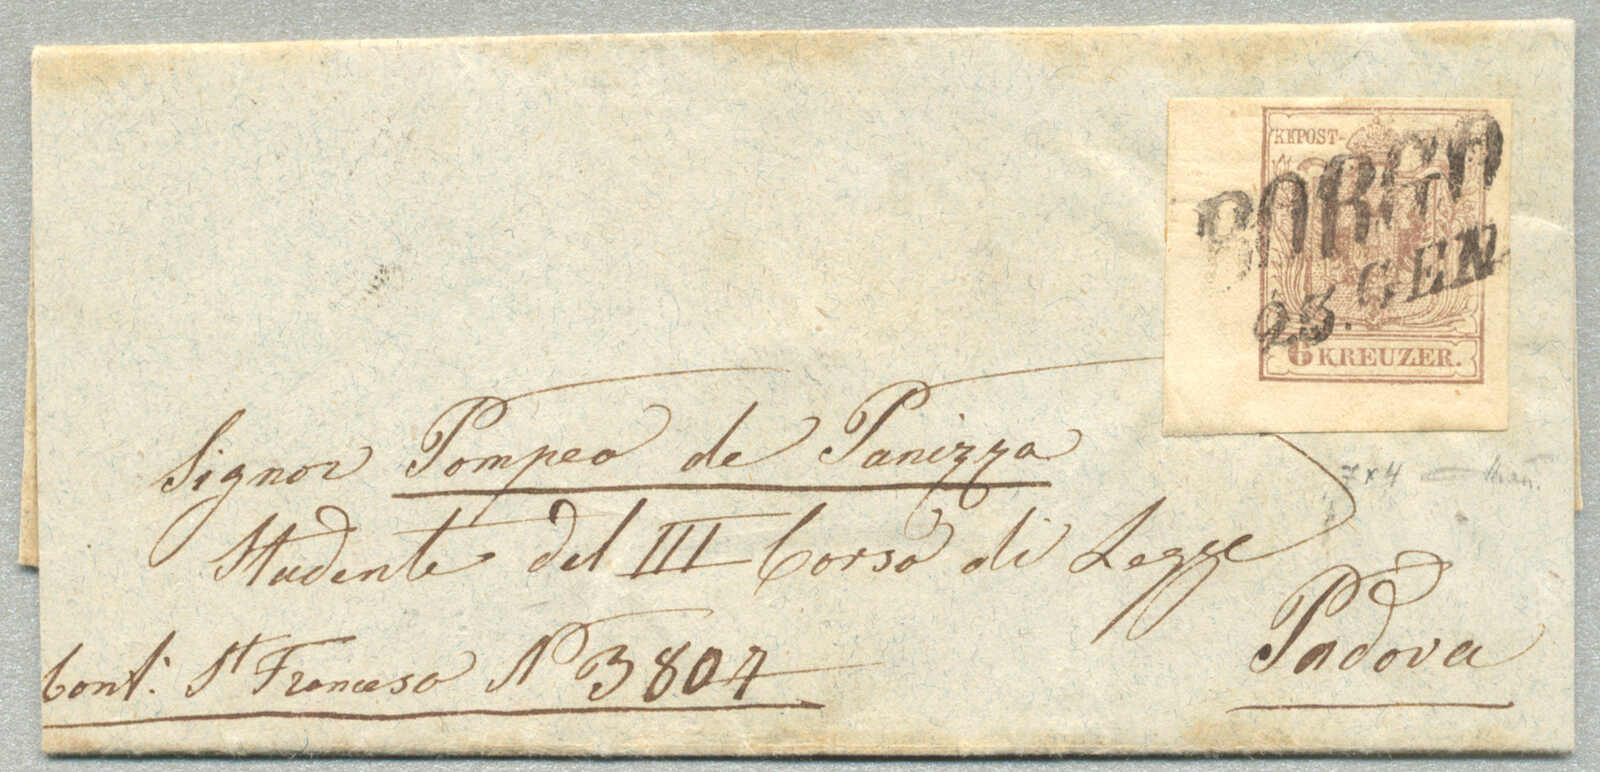 KKPOST-
BORGO
23. GEN
6 KREUZER.
Signor Pompeo de Panizza
Studente del III Corso di Legge
Padova
Cont: St Francesco N 3804
7 x 4